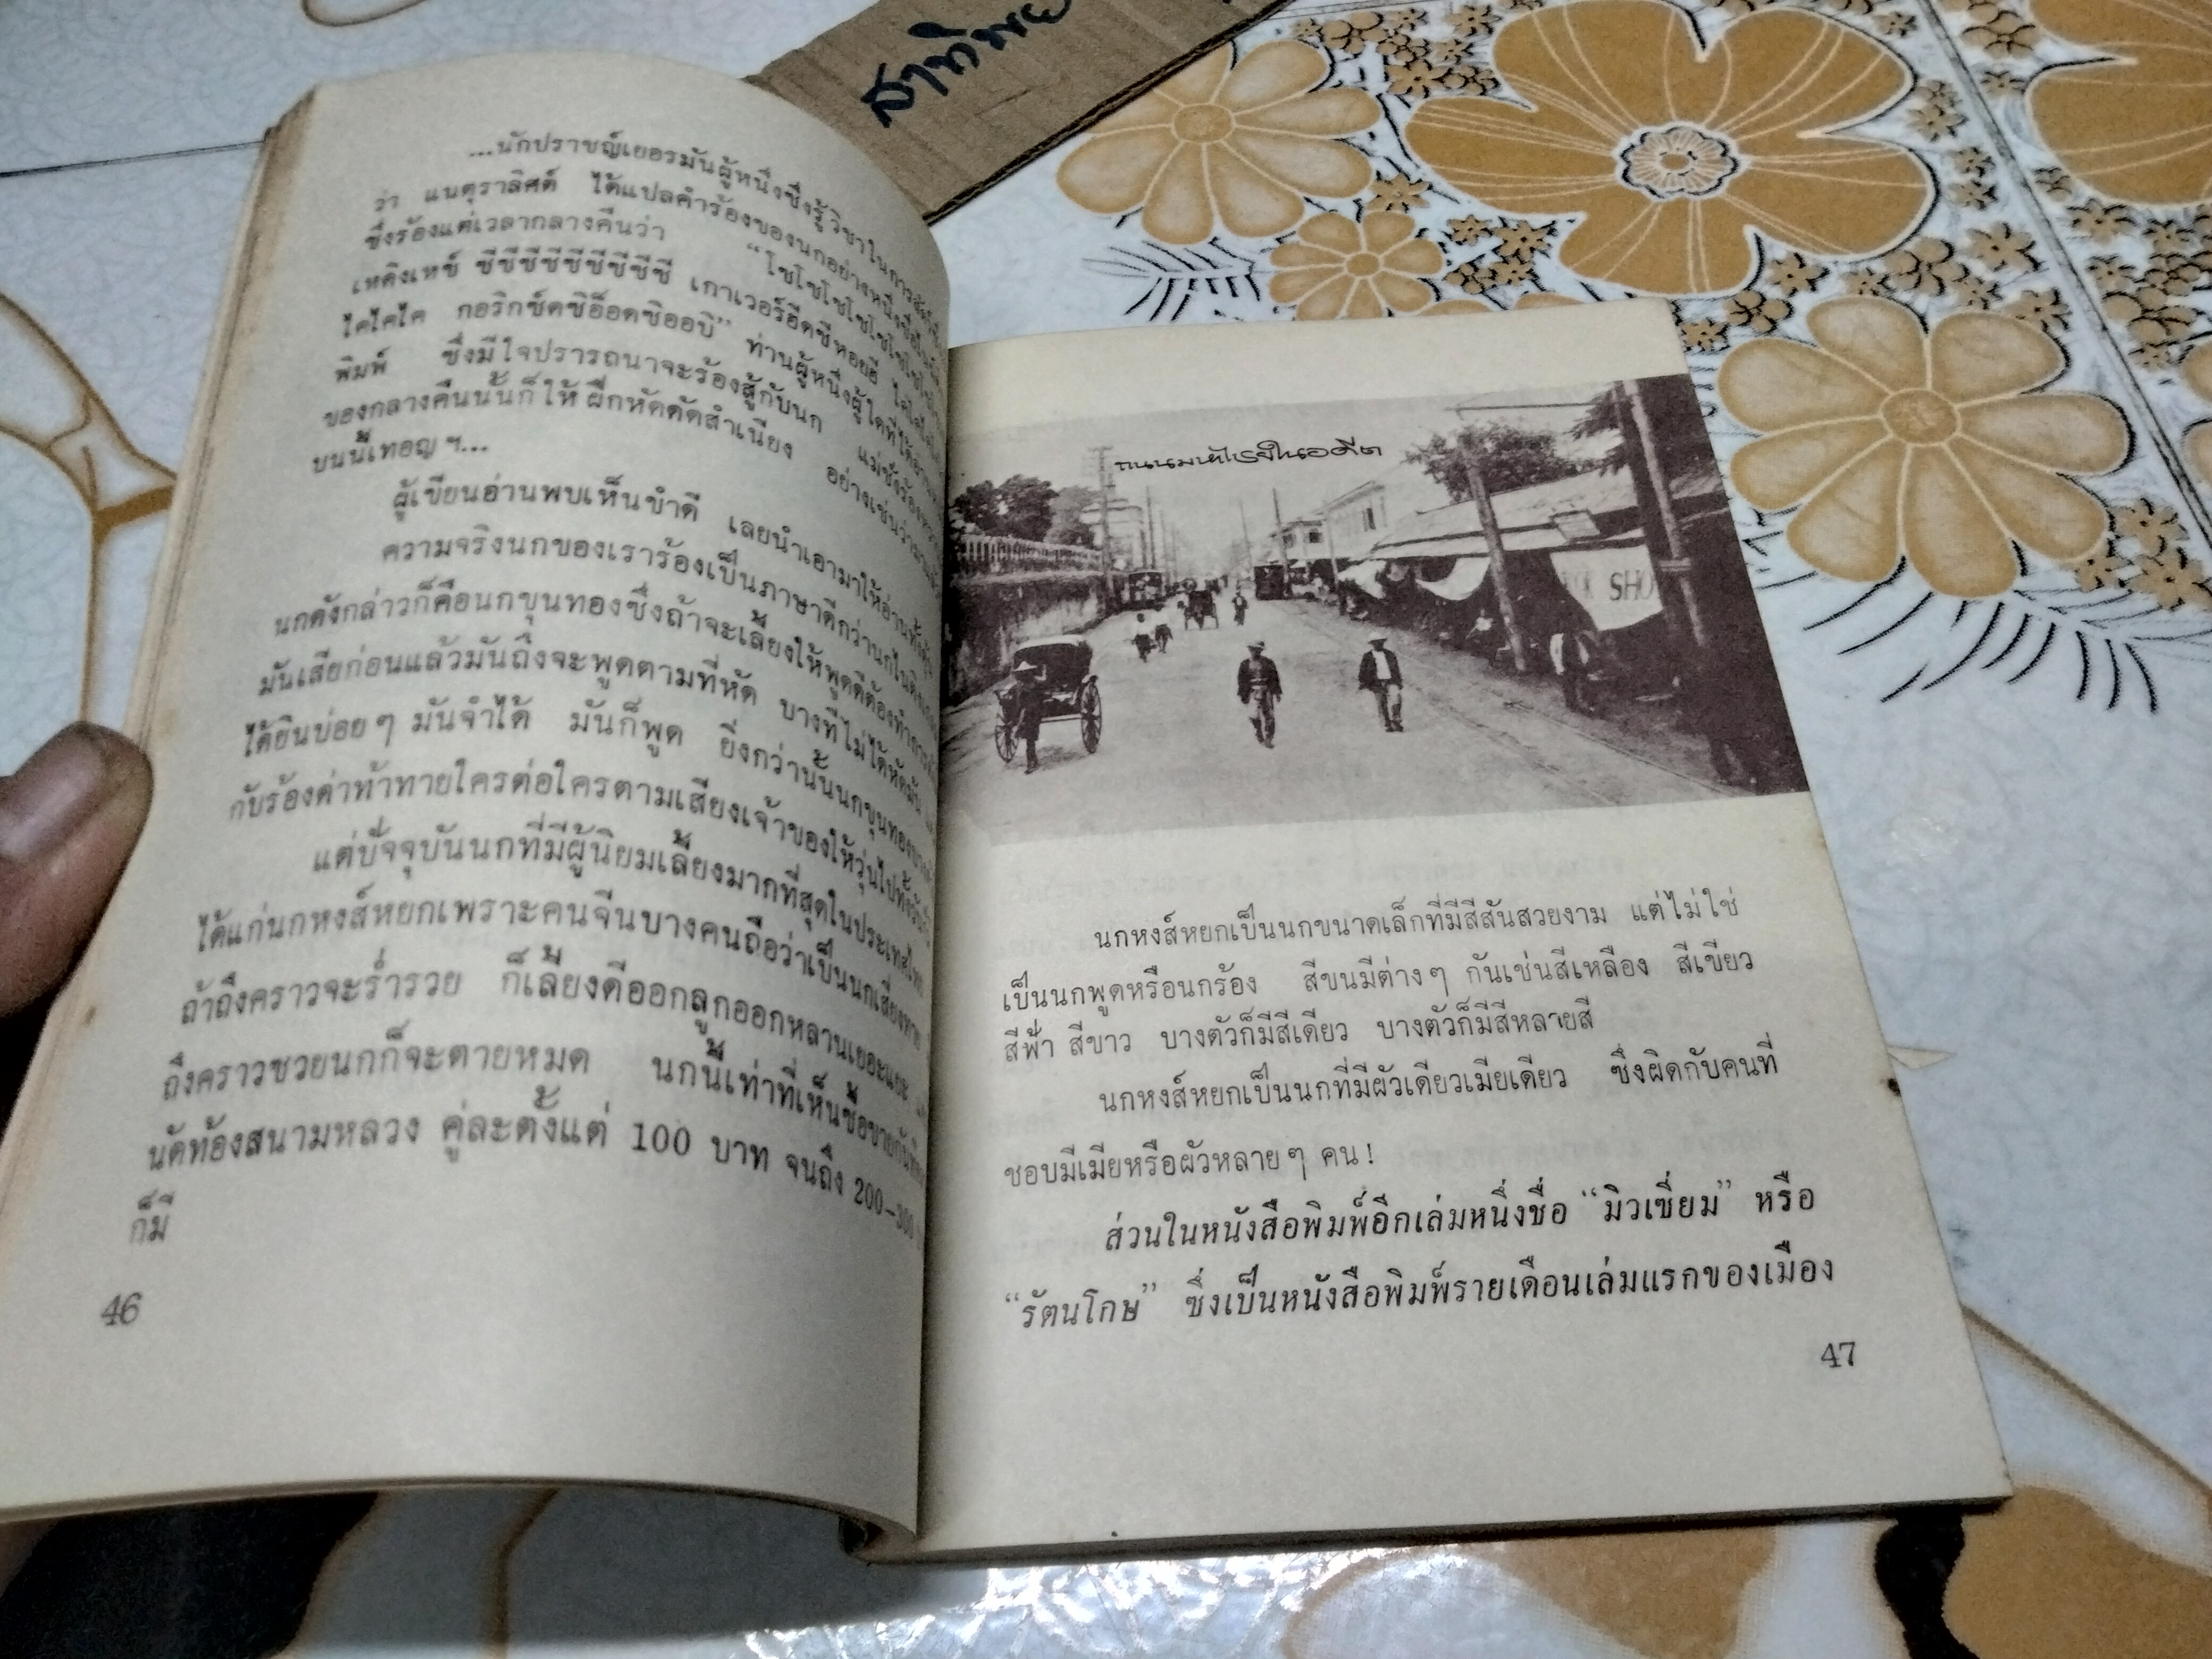 สาทิพย
...นักปราชญ์เยอรมันผู้หนึ่งซึ่งรู้วิชาในการ
ว่า แนตุราลิศต์ ได้แปลคำร้องของนกอย่างหนึ่งชื่อ
ซึ่งร้องแต่เวลากลางคืนว่า “โซโซโซโซโซโซโซ
เหดิงเหซ์ ซีซีซีซีซีซีซีซีซี เกาเวอร์ฮีดซีหอยฮี
ไคไคไค กอริกซ์ดซิอ็อดซิออบิ” ท่านผู้หนึ่งผู้ใดที่ได้อ่าน
พิมพ์ ซึ่งมีใจปรารถนาจะร้องสู้กับนก
ของกลางคืนนั้นก็ให้ฝึกหัดดัดสำเนียง อย่างเช่นว่ามา
บนนี้เทอญ ฯ...
ผู้เขียนอ่านพบเห็นขำดี เลยนำเอามาให้อ่าน
ความจริงนกของเราร้องเป็นภาษาดีกว่านก
นกดังกล่าวก็คือนกขุนทองซึ่งถ้าจะเลี้ยงให้พูดดีต้องทำ
มันเสียก่อนแล้วมันถึงจะพูดตามที่หัด บางทีไม่ได้หัดมัน
ได้ยินบ่อย ๆ มันจำได้ มันก็พูด ยิ่งกว่านั้นนกขุนทอง
กับร้องด่าท้าทายใครต่อใครตามเสียงเจ้าของให้วุ่นไปทั้ง
แต่ปัจจุบันนกที่มีผู้นิยมเลี้ยงมากที่สุดในประเทศไทย
ได้แก่นกหงส์หยกเพราะคนจีนบางคนถือว่าเป็นนกเสี่ยงทาย
ถ้าถึงคราวจะร่ำรวย ก็เลี้ยงดีออกลูกออกหลานเยอะแยะ
ถึงคราวซวยนกก็จะตายหมด นกนี้เท่าที่เห็นซื้อขายกัน
นัดท้องสนามหลวง คู่ละตั้งแต่ 100 บาท จนถึง 200–300
ก็มี
46
ถนนมหาไชยในอดีต
SHO
นกหงส์หยกเป็นนกขนาดเล็กที่มีสีสันสวยงาม แต่ไม่ใช่
เป็นนกพูดหรือนกร้อง สีขนมีต่าง ๆ กันเช่นสีเหลือง สีเขียว
สีฟ้า สีขาว บางตัวก็มีสีเดียว บางตัวก็มีสีหลายสี
นกหงส์หยกเป็นนกที่มีผัวเดียวเมียเดียว ซึ่งผิดกับคนที่
ชอบมีเมียหรือผัวหลาย ๆ คน !
ส่วนในหนังสือพิมพ์อีกเล่มหนึ่งชื่อ “มิวเซี่ยม” หรือ
“รัตนโกษ” ซึ่งเป็นหนังสือพิมพ์รายเดือนเล่มแรกของเมือง
47